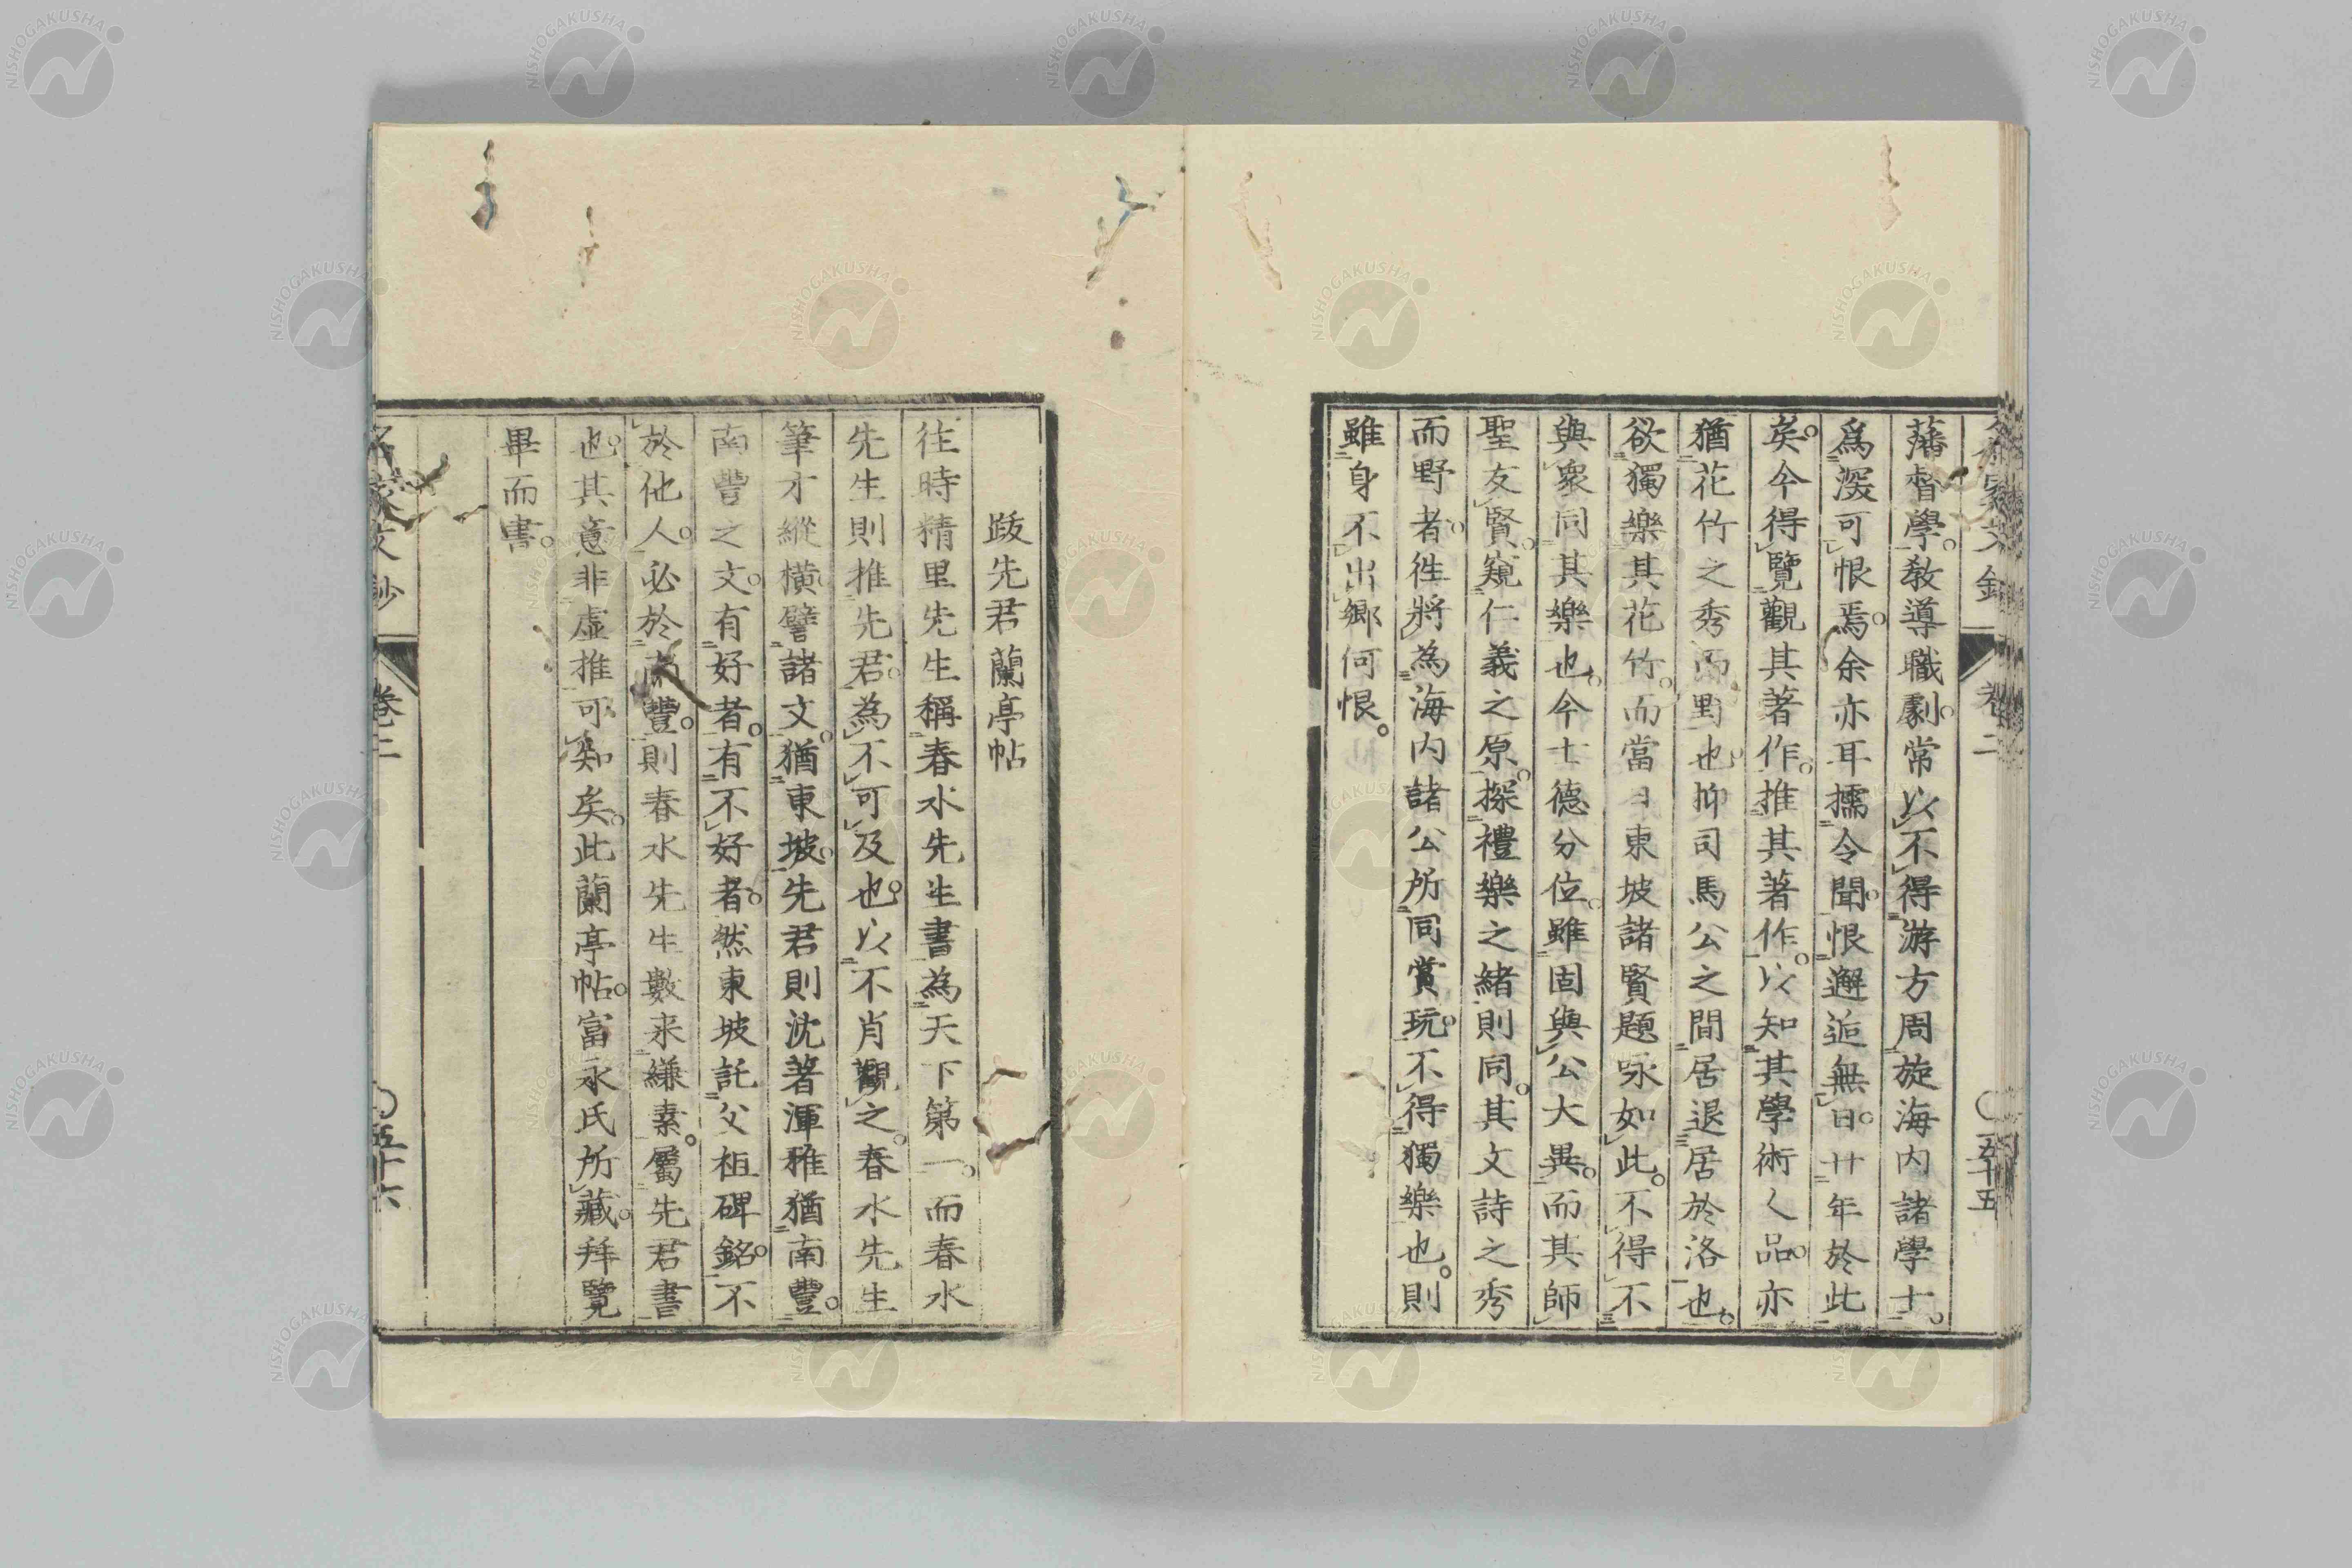 藩督學。教導職劇。常以不得游方周旋海内諸學士。
爲深可恨焉。余亦耳擩令聞。恨邂逅無日。廿年於此
矣。今得覽觀其著作。推其著作。以知其學術人品。亦
猶花竹之秀而野也。抑司馬公之間居退居於洛也。
欲獨樂其花竹。而當日東坡諸賢題咏如此。不得不
與衆同其樂也。今士德分位。雖固與公大異。而其師
聖友賢。窺仁義之原。探禮樂之緒則同。其文詩之秀
而野者。徃將為海内諸公所同賞玩。不得獨樂也。則
雖身不出郷何恨。
卷二
五十五
跋先君蘭亭帖
往時精里先生稱春水先生書為天下第一。而春水
先生則推先君。為不可及也。以不肖觀之。春水先生
筆才縱橫。譬諸文。猶東坡。先君則沈著渾雅。猶南豐。
南豐之文。有好者。有不好者。然東坡託父祖碑銘。不
於他人。必於南豐。則春水先生數来縑素。屬先君書
也。其意非虚推。可知矣。此蘭亭帖。富永氏所藏。拜覽
畢而書。
名家文鈔
卷二
五十六
NISHOGAKUSHA